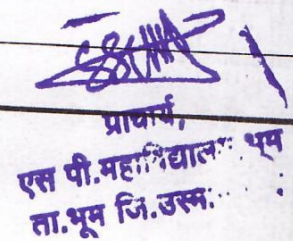 प्राचार्य,
एस पी.महाविद्यालय भूम
ता.भूम जि.उस्म